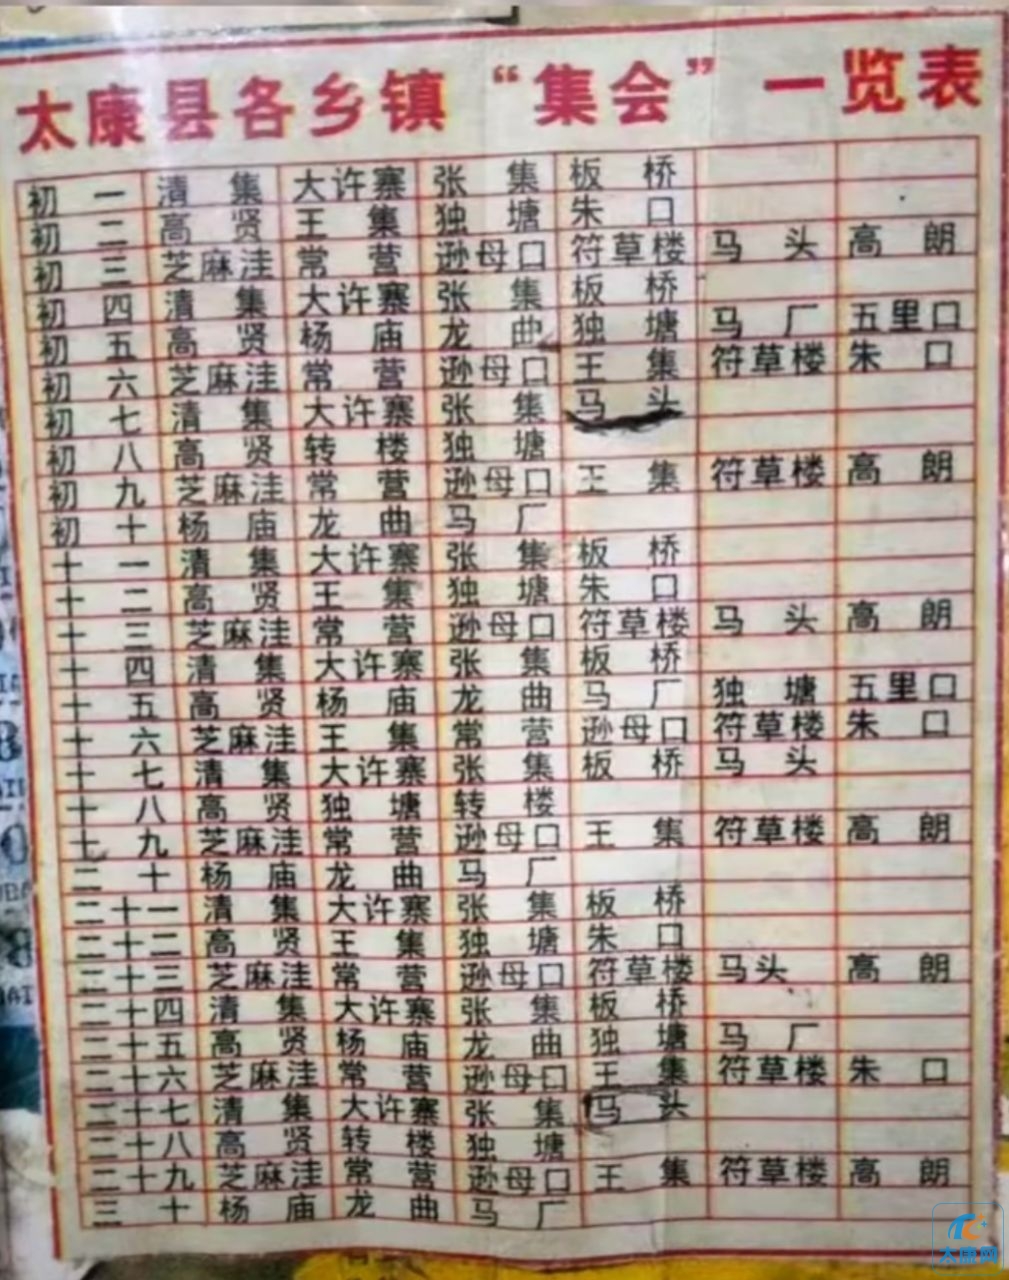 太康县各乡镇“集会”一览表
初一 清集 大许寨 张集 板桥
初二 高贤 王集 独塘 朱口
初三 芝麻洼 常营 逊母口 符草楼 马头 高朗
初四 清集 大许寨 张集 板桥
初五 高贤 杨庙 龙曲 独塘 马厂 五里口
初六 芝麻洼 常营 逊母口 王集 符草楼 朱口
初七 清集 大许寨 张集 马头
初八 高贤 转楼 独塘
初九 芝麻洼 常营 逊母口 王集 符草楼 高朗
初十 杨庙 龙曲 马厂
十一 清集 大许寨 张集 板桥
十二 高贤 王集 独塘 朱口
十三 芝麻洼 常营 逊母口 符草楼 马头 高朗
十四 清集 大许寨 张集 板桥
十五 高贤 杨庙 龙曲 马厂 独塘 五里口
十六 芝麻洼 王集 常营 逊母口 符草楼 朱口
十七 清集 大许寨 张集 板桥 马头
十八 高贤 独塘 转楼
十九 芝麻洼 常营 逊母口 王集 符草楼 高朗
二十 杨庙 龙曲 马厂
二十一 清集 大许寨 张集 板桥
二十二 高贤 王集 独塘 朱口
二十三 芝麻洼 常营 逊母口 符草楼 马头 高朗
二十四 清集 大许寨 张集 板桥
二十五 高贤 杨庙 龙曲 独塘 马厂
二十六 芝麻洼 常营 逊母口 王集 符草楼 朱口
二十七 清集 大许寨 张集 马头
二十八 高贤 转楼 独塘
二十九 芝麻洼 常营 逊母口 王集 符草楼 高朗
三十 杨庙 龙曲 马厂
太康网